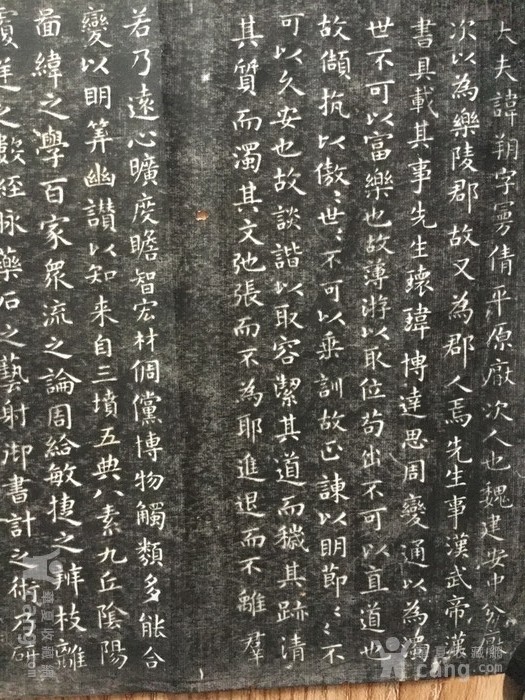 大夫諱朔字曼倩平原厭次人也魏建安中分厭
次以為樂陵郡故又為郡人焉先生事漢武帝漢
書具載其事先生瓌瑋博達思周變通以為濁
世不可以富樂也故薄游以取位苟出不可以直道也
故頡抗以傲〻世〻不可以垂訓故正諫以明節〻不
可以久安也故談諧以取容絜其道而穢其跡清
其質而濁其文弛張而不為耶進退而不離羣
若乃遠心曠度瞻智宏材倜儻博物觸類多能合
變以明筭幽讃以知来自三墳五典八素九丘陰陽
啚緯之學百家衆流之論周給敏捷之辨枝離
覆逆之數經脉藥石之藝射御書計之術乃研
華夏收藏網
cang.com